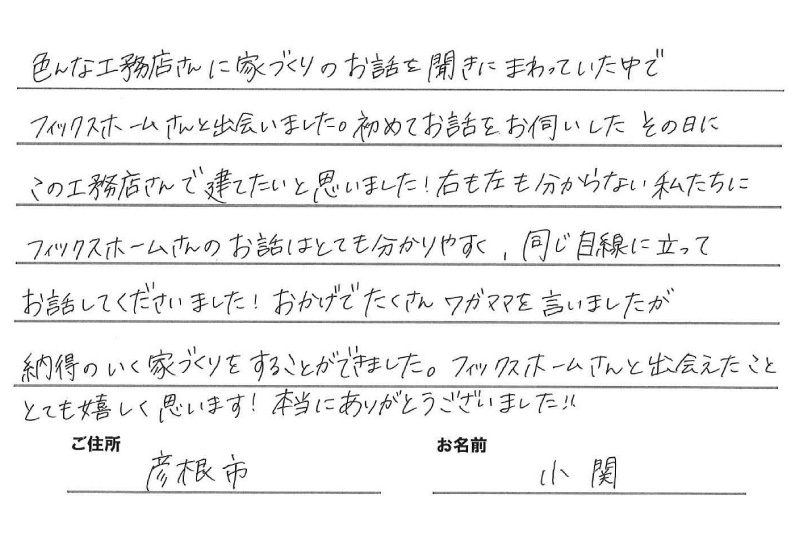 色んな工務店さんに家づくりのお話を聞きにまわっていた中で
フィックスホームさんと出会いました。初めてお話をお伺いしたその日に
この工務店さんで建てたいと思いました!右も左も分からない私たちに
フィックスホームさんのお話はとても分かりやすく、同じ目線に立って
お話してくださいました!おかげでたくさんワガママを言いましたが
納得のいく家づくりをすることができました。フィックスホームさんと出会えたこと
とても嬉しく思います!本当にありがとうございました!!
ご住所 お名前
彦根市 小関